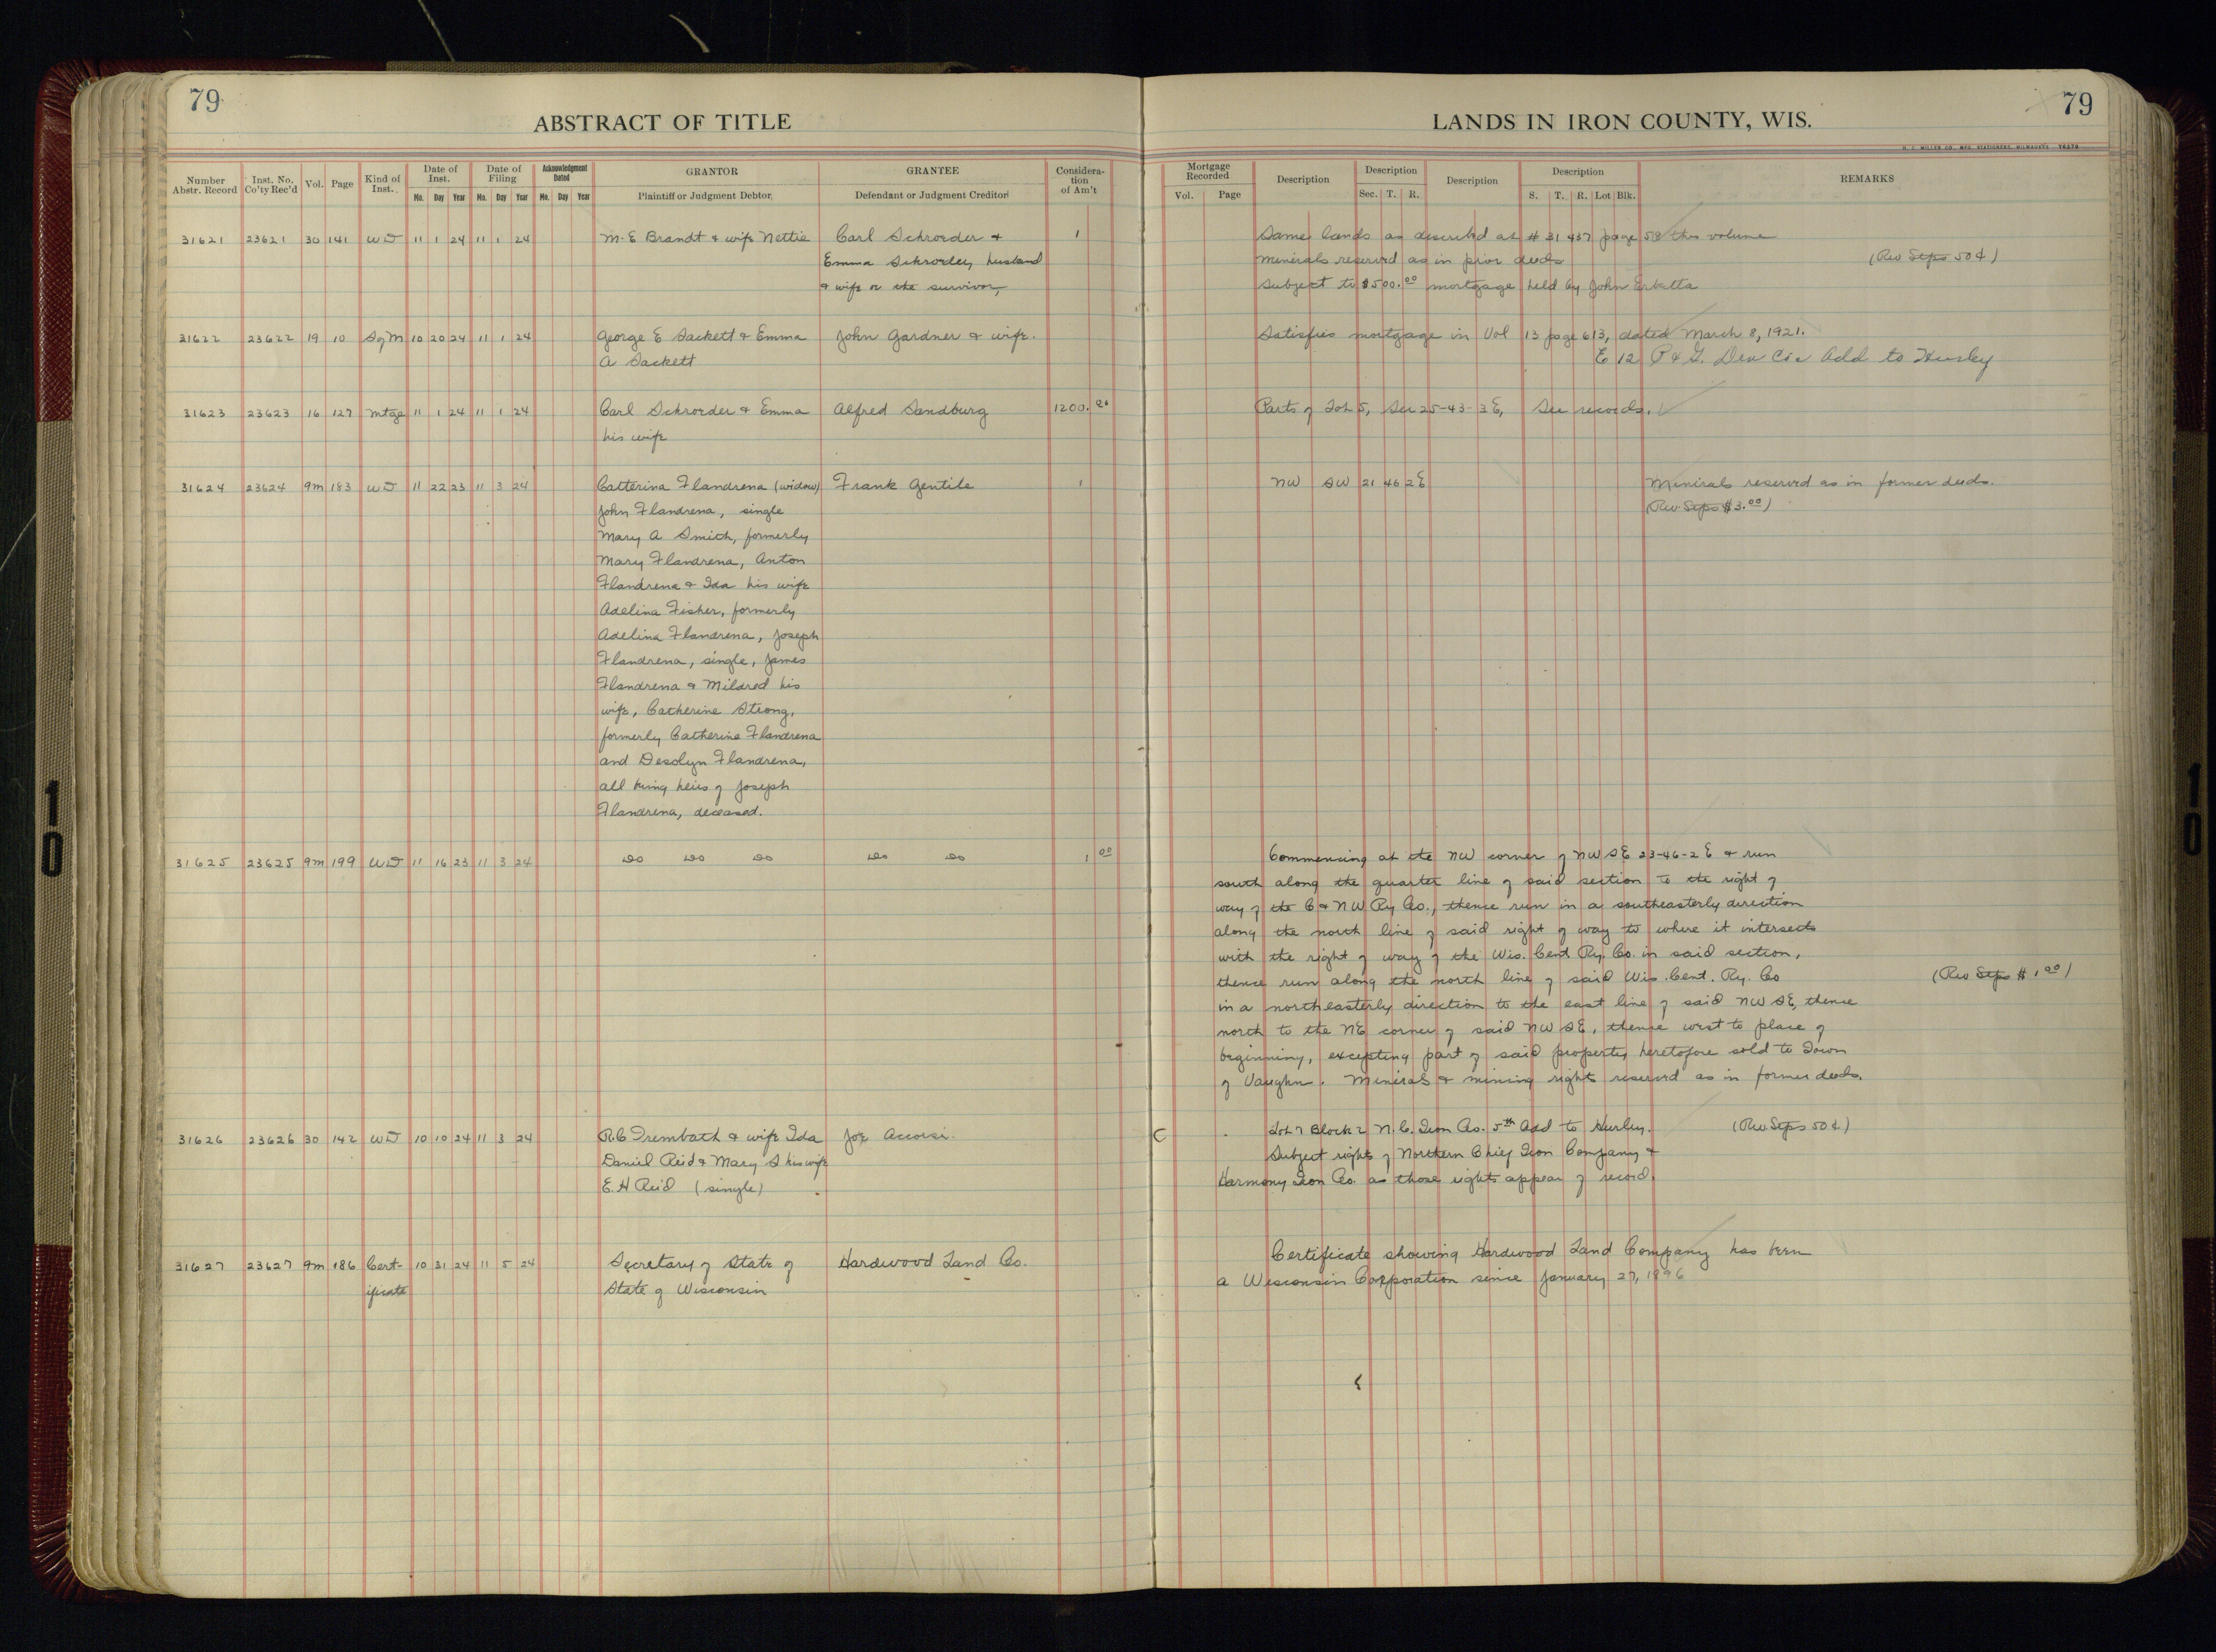 79
ABSTRACT OF TITLE
Number Abstr. Record
Inst. No. Co'ty Rec'd
Vol.
Page
Kind of Inst.
Date of Inst.
Mo. Day Year
Date of Filing
Mo. Day Year
Acknowledgment Dated
Mo. Day Year
GRANTOR
Plaintiff or Judgment Debtor
GRANTEE
Defendant or Judgment Creditor
Considera-
tion
of Am't
31621 23621 30 141 WD 11 1 24 11 1 24 M. E Brandt & wife Nettie Carl Schroeder & 1
Emma Schroeder, husband
& wife or the survivor,
31622 23622 19 10 Sg M 10 20 24 11 1 24 George E Sackett & Emma John Gardner & wife.
A Sackett
31623 23623 16 127 Mtge 11 1 24 11 1 24 Carl Schroeder & Emma Alfred Sandburg 1200.00
his wife
31624 23624 9m 183 WD 11 22 23 11 3 24 Catterina Flandrena (widow) Frank Gentile 1
John Flandrena, single
Mary A Smith, formerly
Mary Flandrena, Anton
Flandrena & Ida his wife
Adelina Fisher, formerly
Adelina Flandrena, Joseph
Flandrena, single, James
Flandrena & Mildred his
wife, Catherine Strong,
formerly Catherine Flandrena
and Desolyn Flandrena,
all being heirs of Joseph
Flandrena, deceased.
31625 23625 9m 199 WD 11 16 23 11 3 24 Do Do Do Do Do 1 00
31626 23626 30 142 WD 10 10 24 11 3 24 R.C Trembath & wife Ida Joe Accorsi.
Daniel Reid & Mary S his wife
E. H Reid (single)
31627 23627 9m 186 Cert- 10 31 24 11 5 24 Secretary of State of Hardwood Land Co.
ificate State of Wisconsin
79
LANDS IN IRON COUNTY, WIS.
Mortgage Recorded
Vol. Page
Description
Description
Sec. T. R.
Description
Description
S. T. R. Lot Blk.
REMARKS
Same lands as described at # 31437 page 58 this volume
Minerals reserved as in prior deeds (Rev Stps 50¢)
Subject to $500.00 mortgage held by John
Satisfies mortgage in Vol 13 page 613, dated March 8, 1921.
E 12 P & G. Dev Co's Add to Hurley
Parts of Lot 5, Sec 25-43-3E, See records.
NW SW 21 46 2E Minerals reserved as in former deeds.
(Rev. Stps $3.00)
Commencing at the NW corner of NW SE 23-46-2 E & run
south along the quarter line of said section to the right of
way of the C & NW Ry Co., thence run in a southeasterly direction
along the north line of said right of way to where it intersects
with the right of way of the Wis. Cent Ry. Co. in said section,
thence run along the north line of said Wis. Cent. Ry. Co (Rev Stps $1.00)
in a northeasterly direction to the east line of said NW SE, thence
north to the NE corner of said NW SE, thence west to place of
beginning, excepting part of said property heretofore sold to Town
of Vaughn. Minerals & mining rights reserved as in former deeds.
Lot 7 Block 2 N. C. Iron Co. 5th Add to Hurley. (Rev. Stps 50¢)
Subject rights of Northern Chief Iron Company &
Harmony Iron Co. as those rights appear of record.
Certificate showing Hardwood Land Company has been
a Wisconsin Corporation since January 27, 1896
10
10